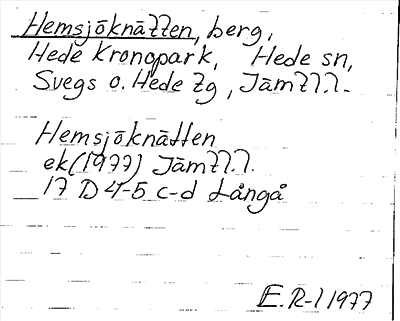 Hemsjöknätten, berg,
Hede kronopark, Hede sn,
Svegs o. Hede tg, Jämtl.l.
Hemsjöknätten
ek (1977) Jämtl.l.
17 D 4-5 c-d Långå
E. R-l 1977